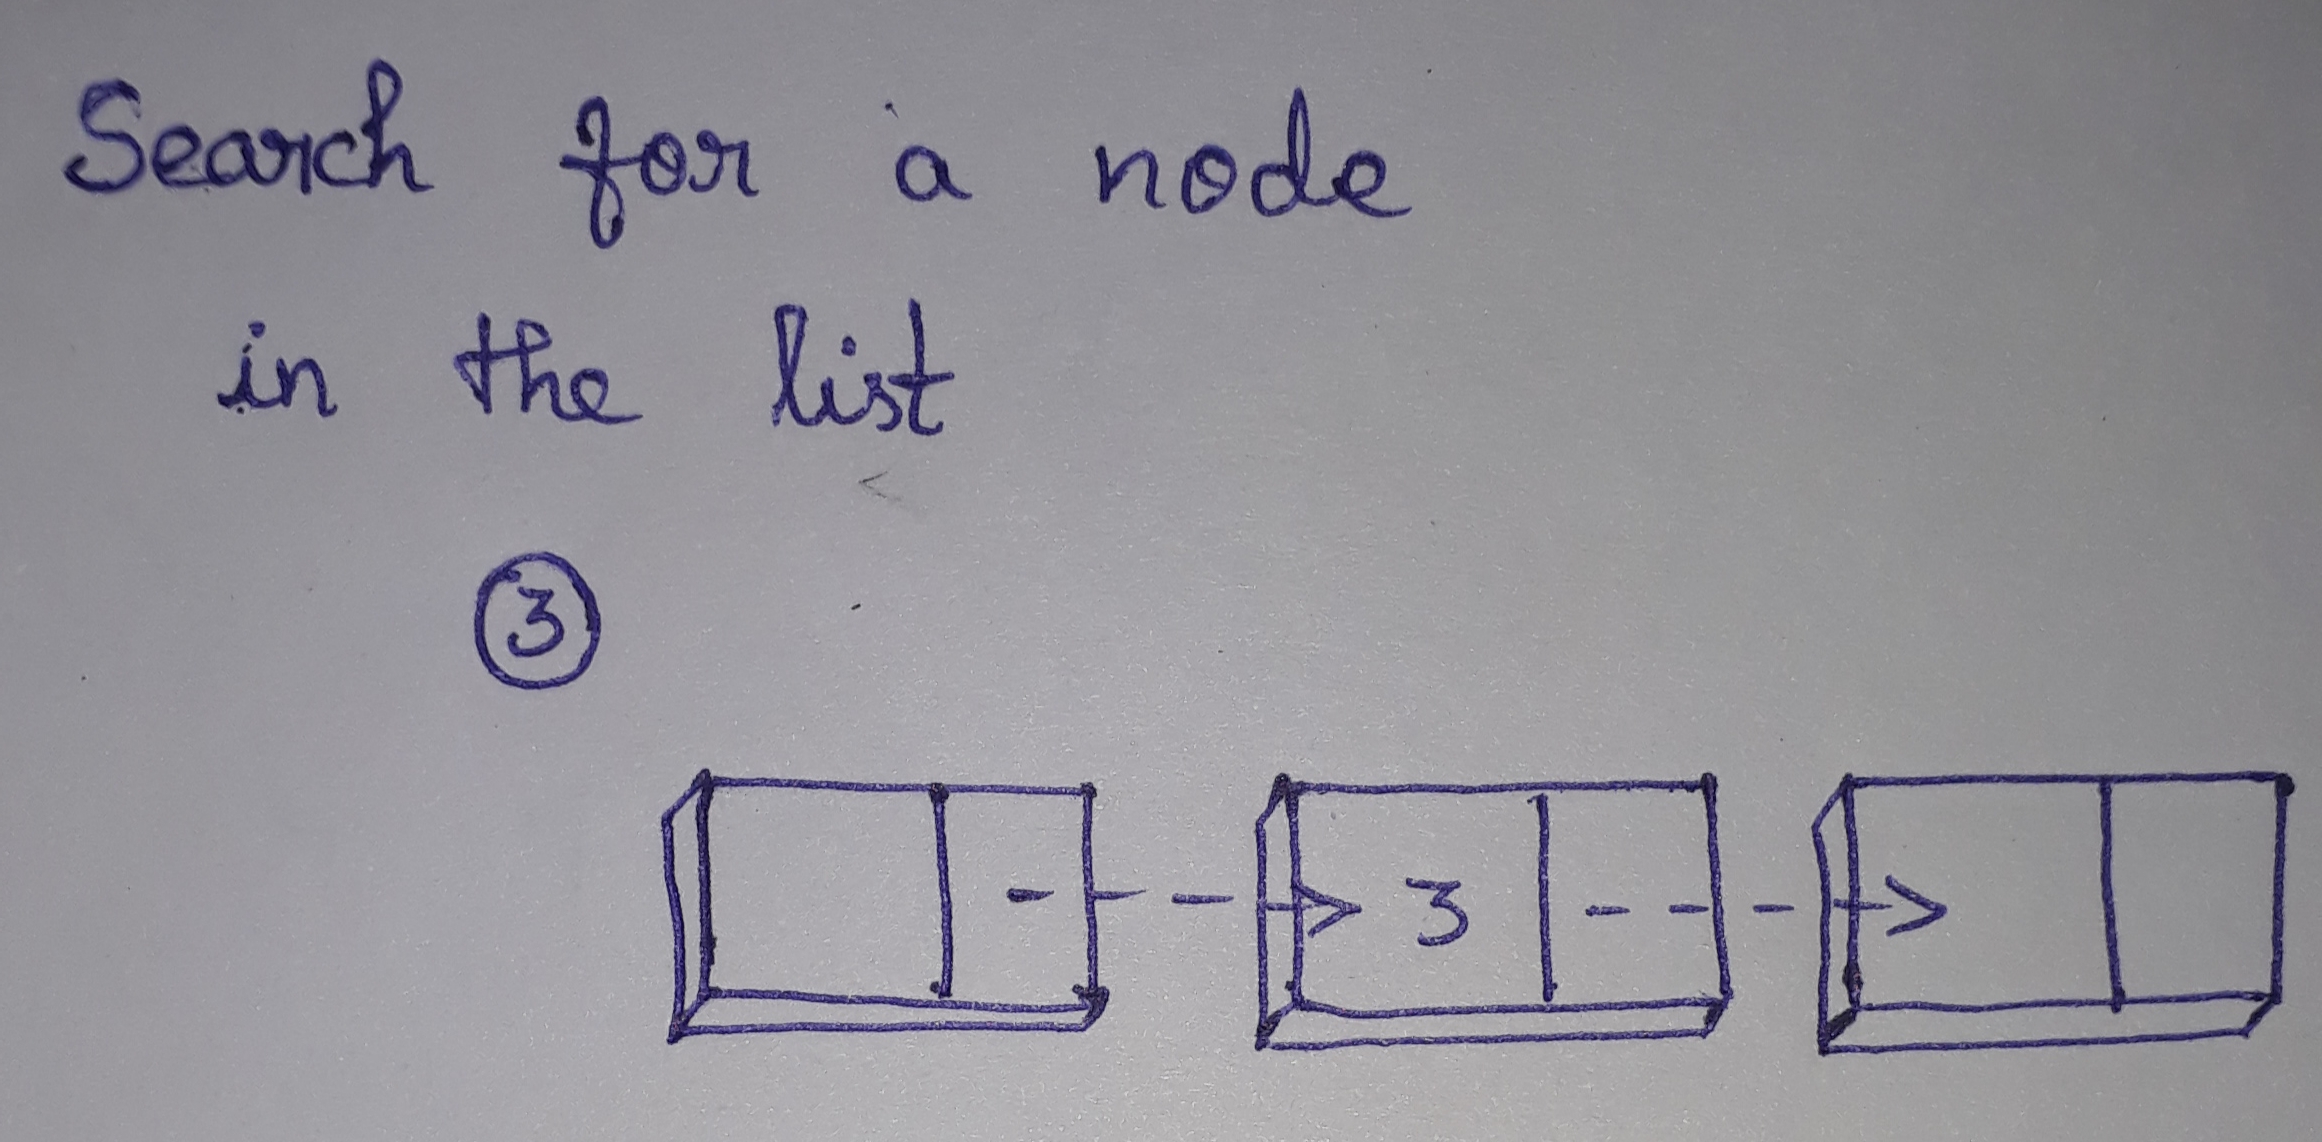 Search for a node
in the list
3
3